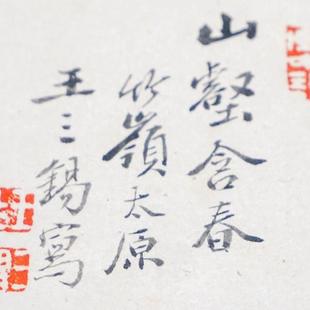 山壑含春
竹嶺太原
王三錫寫